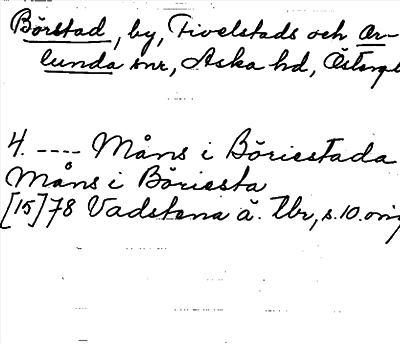 Börstad, by, Fivelstads och Or-
lunda snr, Aska hd, Östergötl
4. ---- Måns i Böriestada
Måns i Böriesta
[15]78 Vadstena ä. Tbr, s. 10. orig